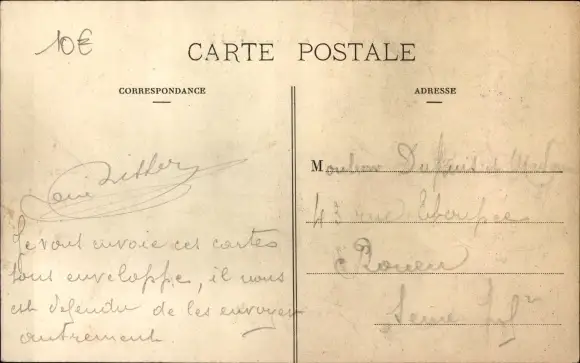 10€
CARTE POSTALE
CORRESPONDANCE
ADRESSE
Je vous envoie ces cartes
sous enveloppe, il nous
est défendu de les envoyer
autrement
Monsieur Dupuis et Madame
43 rue
à Rouen
Seine Infre